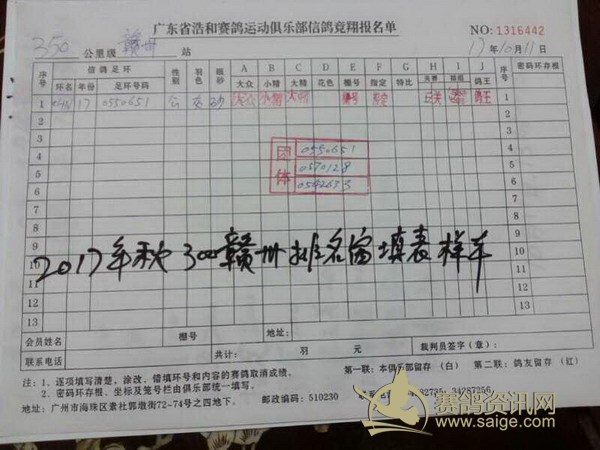 广东省浩和赛鸽运动俱乐部信鸽竞翔报名单
NO:1316442
350 公里级 赣州 站
17年10月11日
序号 信鸽足环 性别 羽色 眼砂 A B C D E F G H I J 序号 密码环存根
环名 年份 足环号码 大众 小精 大精 花色 棚号 指定 特比 关赛 插组 鸽王
1 CHN 17 0550651 公 灰 砂 大众 小精 大精 棚号 指定 三关 鸽王 1
2 2
3 3
4 4
5 5
团体
0550651
0570128
6 6
7 7
8 8
9 9
10 10
2017年秋300赣州排名留填表样本
11 11
12 12
13 13
会员姓名 棚号 地址:
联系电话 共计: 羽 元 裁判员签字(章):
注:1、逐项填写清楚,涂改、错填环号和内容的赛鸽取消成绩。
第一联:本俱乐部留存(白) 第二联:鸽友留存(红)
2、密码环存根、坐标及笼号栏由俱乐部统一填写。
地址:广州市海珠区素社郭墩街72-74号之四地下。 邮政编码:510230
34287256
赛鸽资讯网
www.saige.com